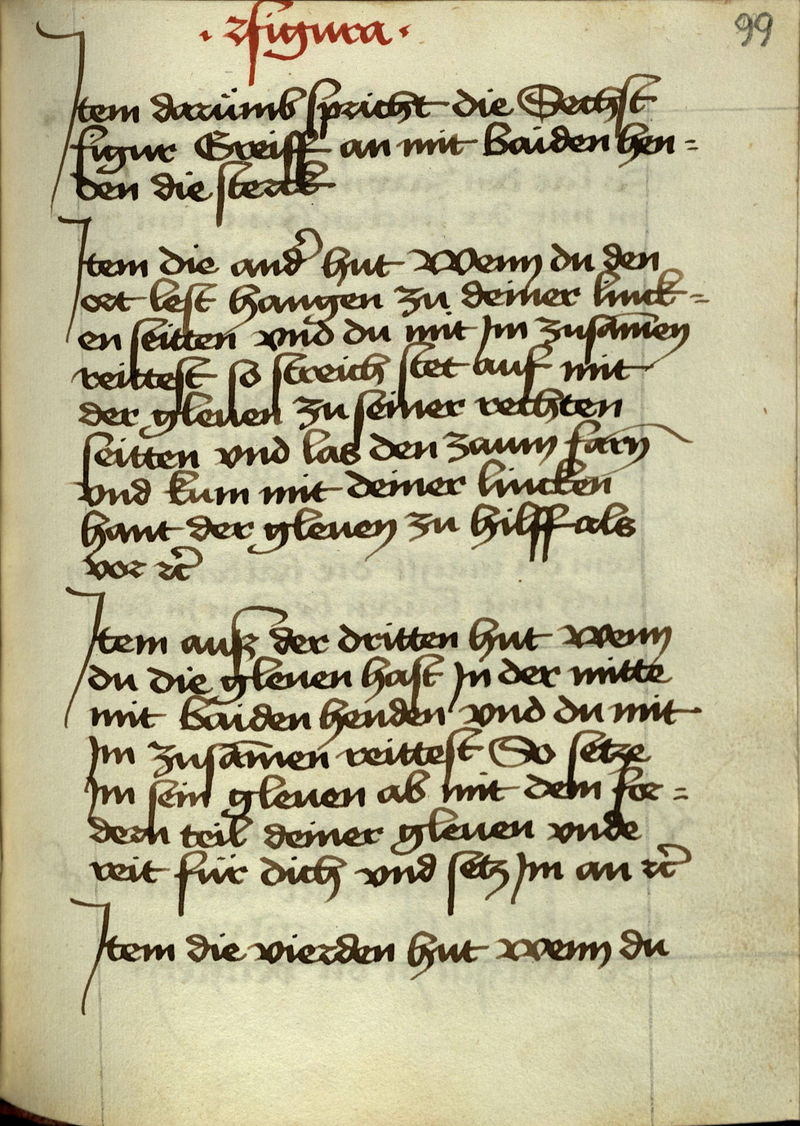 · 2 figura · 99
Item darümb spricht die Sechst
figur Greiff an mit baiden hen=
den die sterck
Item die and̾ hut Wenn du den
ort lest hangen zu deiner linck=
en seitten vnd du mit Im zusam̄en
reittest so streich stet auf mit
der gleuen zu seiner rechten
seitten vnd las den zaum farn̄
vnd kum mit deiner lincken
hant der gleuen zu hilff als
vor ꝛc̄
Item ausz der dritten hut Wenn
du die gleuen hast In der mitte
mit baiden henden vnd du mit
Im zusam̄en reittest So setze
Im sein gleuen ab mit dem for=
dern teil deiner gleuen vnde
reit für dich vnd setz Im an ꝛc̄
Item die vierden hut wenn du